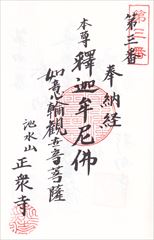 第三番
第三番
奉納経
本尊
釋迦牟尼佛
如意輪觀世音菩薩
池水山
正衆寺